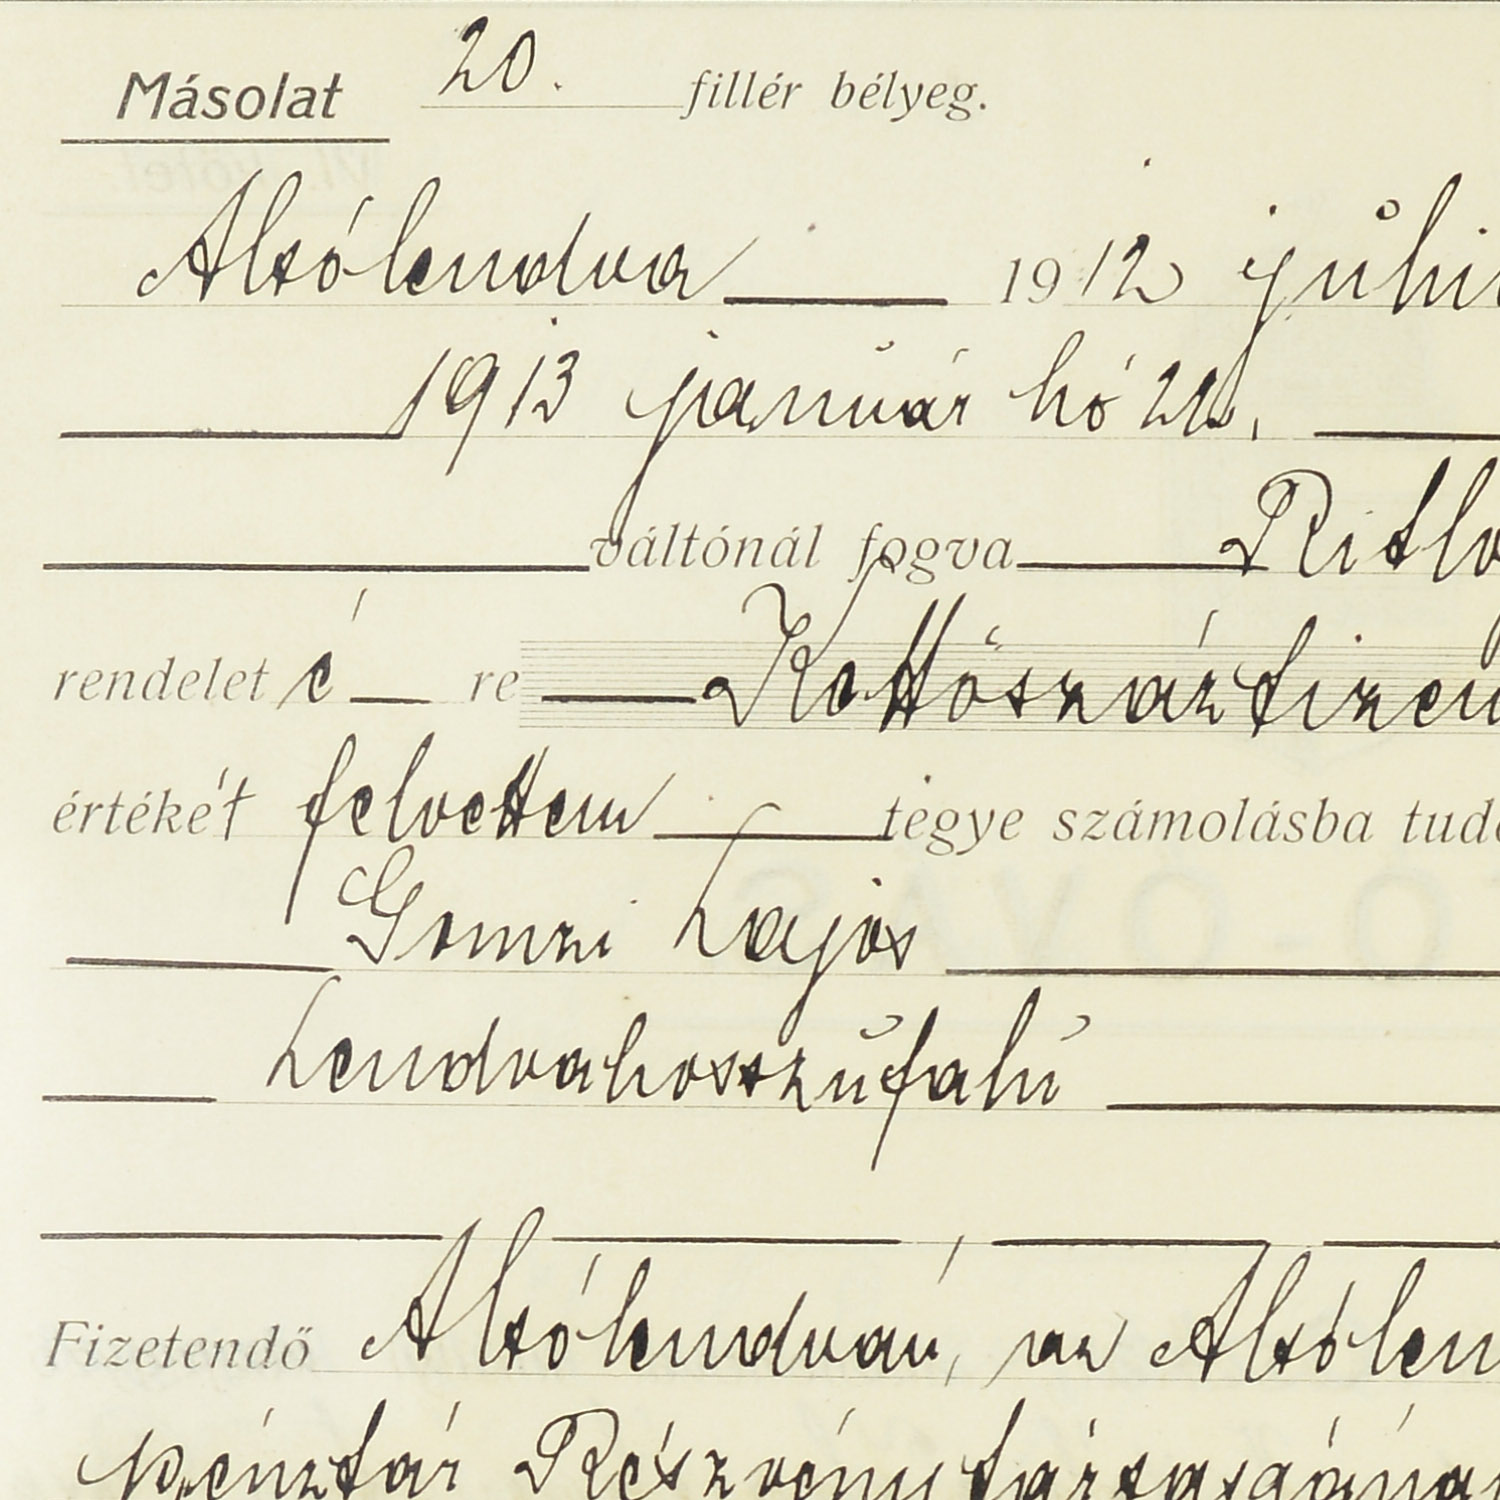 Másolat 20. fillér bélyeg.
Alsólendva 1912 júli
1913 január hó 21,
váltónál fogva
rendelet é re Kettőszáztizen
értékét felvettem tegye számolásba tud
Gomzi Lajos
Lendvahosszúfalú
Fizetendő Alsólendván, az Alsólen
pénztár Részvénytársaságána